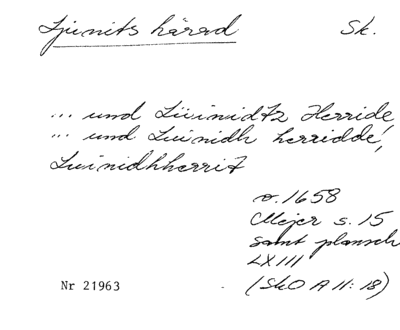 Ljunits härad Sk.
... und Lüinidtz Herride,
... und Luinidh herridde,
Luinidhherrit
o. 1658
Mejer s. 15
samt plansch
LXIII
(SkO A II: 18)
Nr 21963